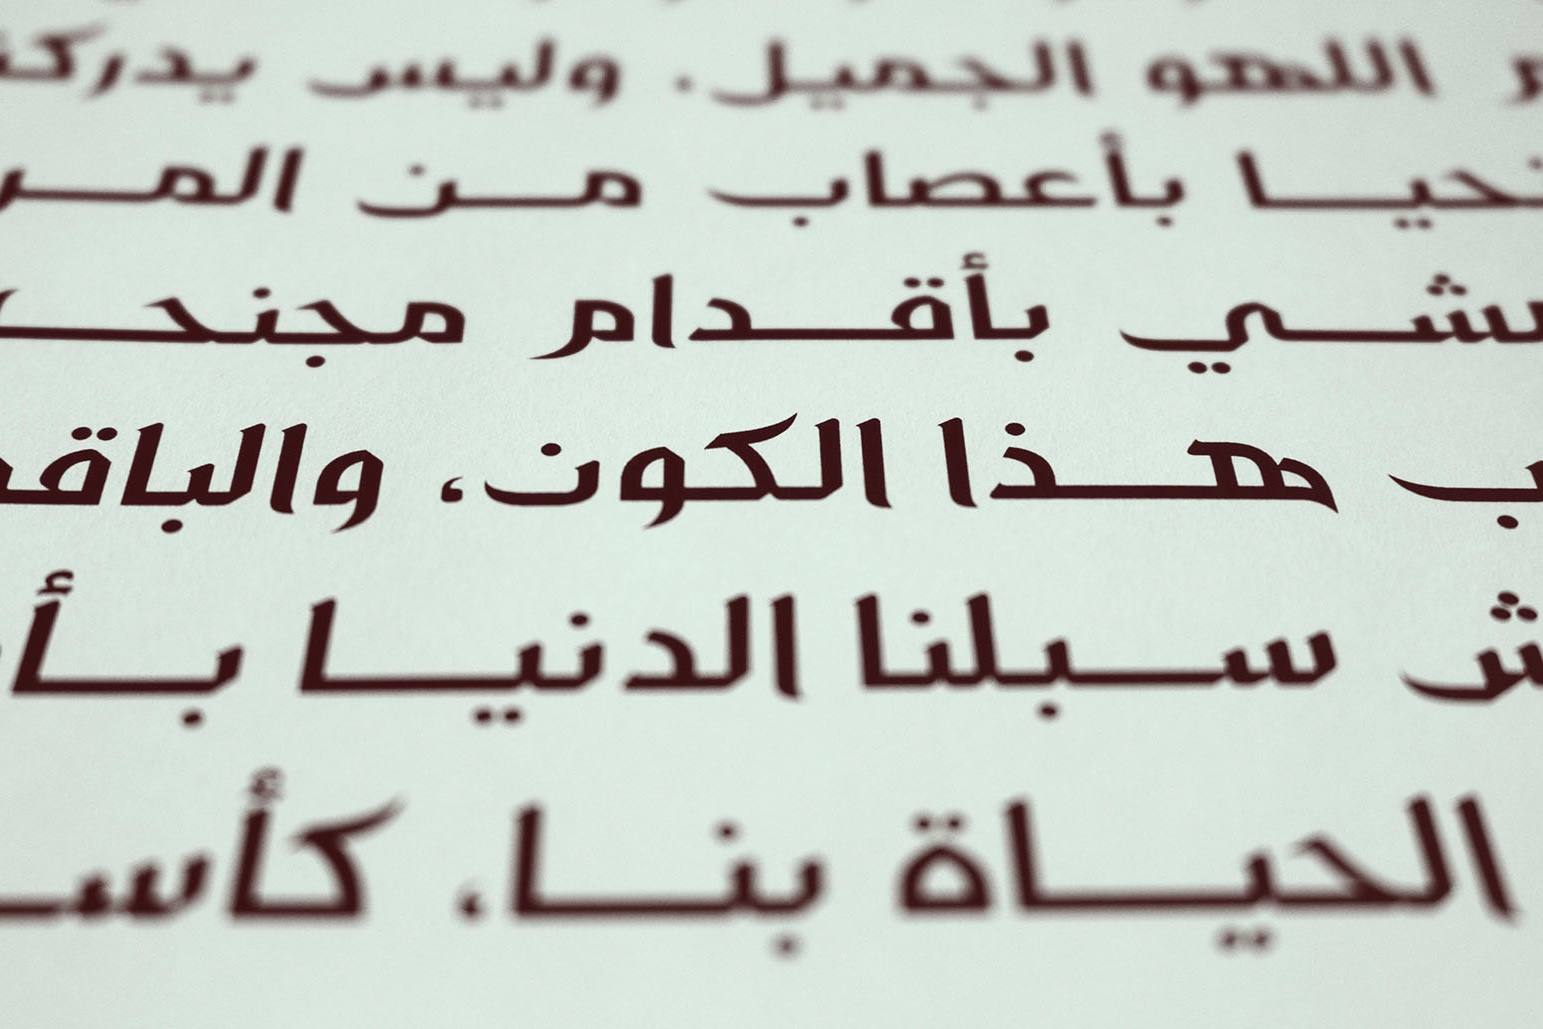 اللهو الجميل. وليس يدركنـ
ـنحيـا بأعصاب مـن المـر
ـمشـي بأقـدام مجنحـ
ـب هـذا الكون، والباقـ
ـش سـبلنا الدنيـا بـأ
الحيـاة بنـا، كأسـ